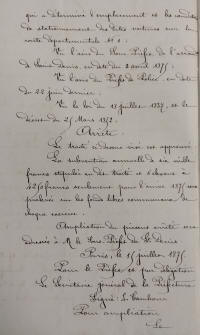 qui a déterminé l'emplacement et les conditions
de stationnement des dites voitures sur la
route départementale N° 1;
Vu l'avis du Sous Préfet de l'arrond
de Saint Denis, en date du 2 avril 1875;
Vu l'avis du Préfet de Police, en date
du 22 juin dernier;
Vu la loi du 18 juillet 1837, et le
décret du 25 Mars 1852;
Arrête:
Le traité ci-dessus visé est approuvé
La subvention annuelle de six mille
francs stipulée au dit traité et réduite à
4250 francs seulement pour l'année 1875 sera
prélevée sur les fonds libres communaux de
chaque exercice.
Ampliation du présent arrêté sera
adressée à M. le Sous Préfet de St Denis
Paris, le 15 juillet 1875
Pour le Préfet et par délégation
Le Secrétaire général de la Préfecture
Signé:
Pour ampliation
Le